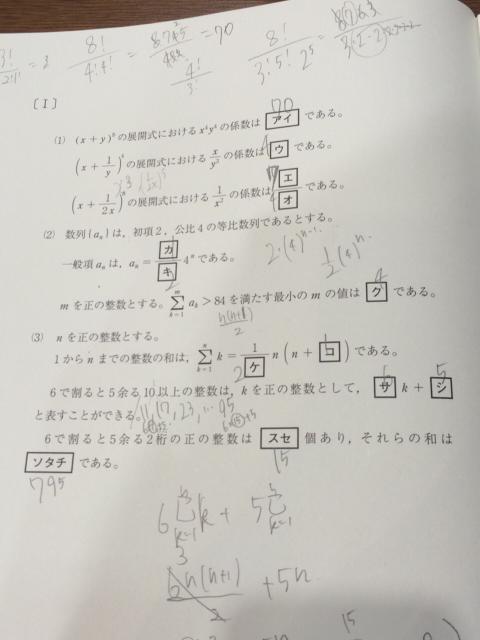 3!/2!1! = 3
8!/4!4!
= 70
4!/3!
8!/3!5!2^5
[I]
(1) (x+y)^8 の展開式における x^4y^4 の係数は アイ である。
70
(x+1/y)^4 の展開式における x/y^3 の係数は ウ である。
4
x^3 (1/2x)^5
(x+1/2x)^8 の展開式における 1/x^2 の係数は エ/オ である。
7
4
(2) 数列{a_n}は、初項2、公比4の等比数列であるとする。
一般項 a_n は、a_n = カ/キ 4^n である。
2
2・(4)^n-1
1/2(4)^n
m を正の整数とする。Σ_{k=1}^{m} a_k > 84 を満たす最小の m の値は ク である。
4
n(n+1)/2
(3) n を正の整数とする。
1から n までの整数の和は、Σ_{k=1}^{n} k = 1/ケ n(n+コ)である。
2
1
6で割ると5余る10以上の整数は、k を正の整数として、サ k + シ
6
5
と表すことができる。
11, 17, 23, … 95
6で割ると5余る2桁の正の整数は スセ 個あり、それらの和は
15
ソタチ である。
795
6 Σ_{k=1} k + 5 Σ_{k=1}
3
6n(n+1)/2 + 5n
15